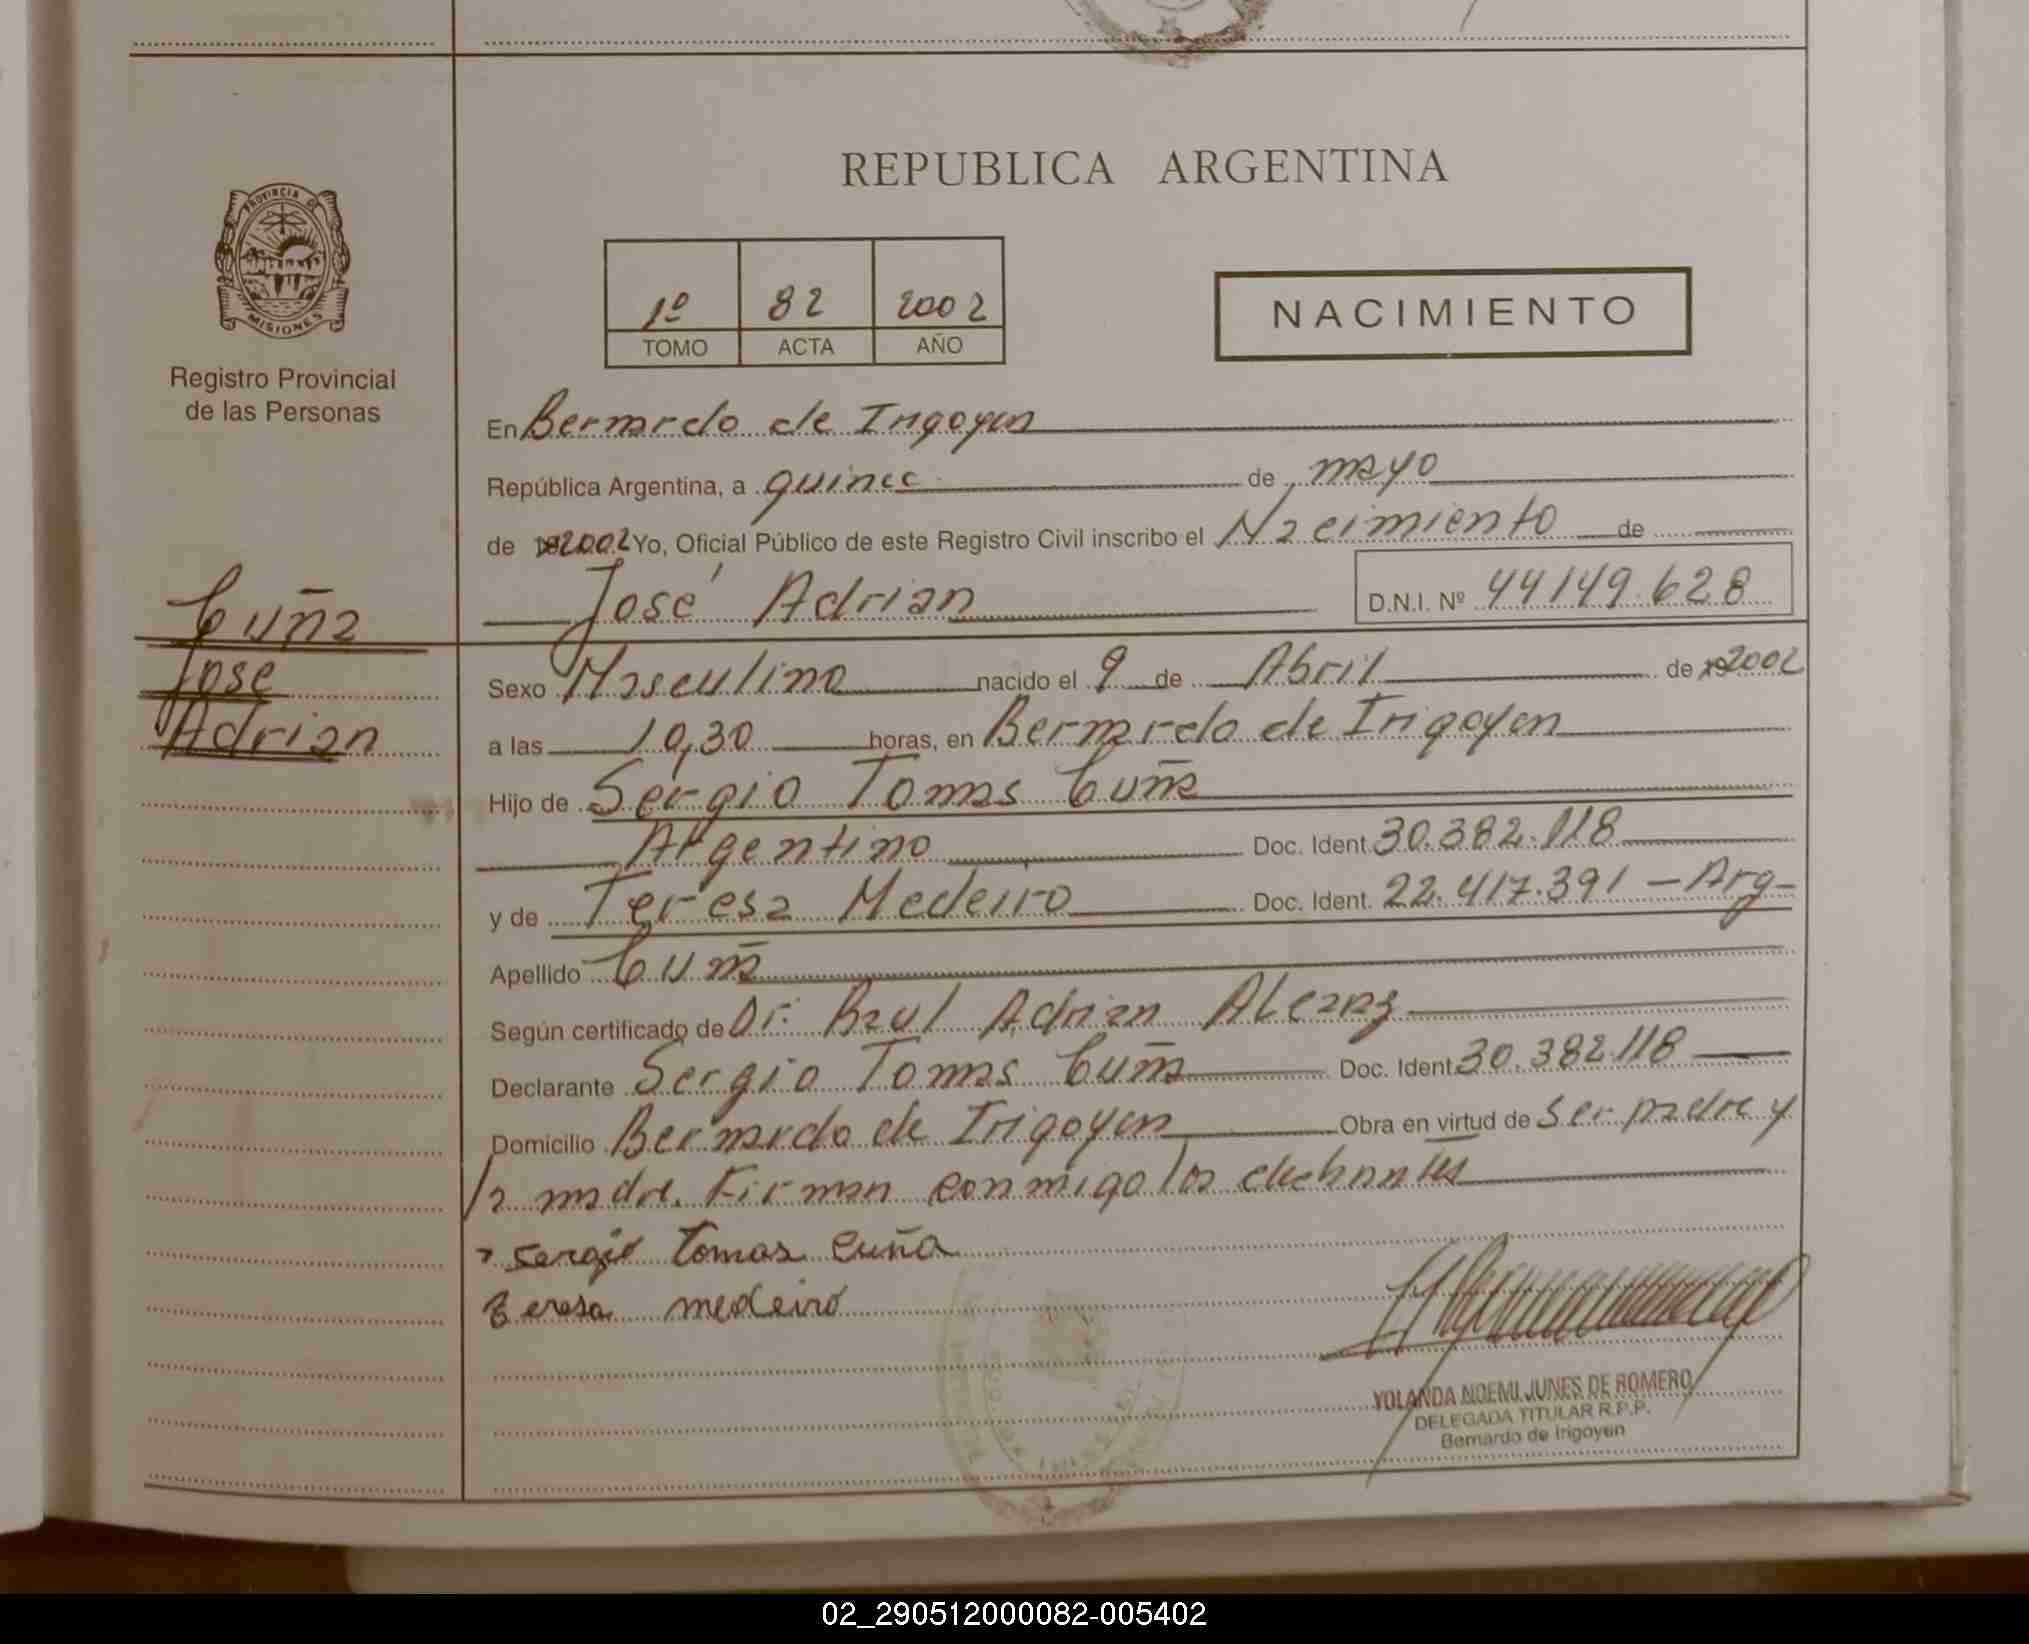 PROVINCIA DE
MISIONES
Registro Provincial
de las Personas
Cuña
José
Adrian
REPUBLICA ARGENTINA
1º 82 2002
TOMO ACTA AÑO
NACIMIENTO
En Bernardo de Irigoyen
República Argentina, a quince de mayo
de 2002 Yo, Oficial Público de este Registro Civil inscribo el Nacimiento de
José Adrian D.N.I. Nº 44149.628
Sexo Masculino nacido el 9 de Abril de 2002
a las 10,30 horas, en Bernardo de Irigoyen
Hijo de Sergio Tomas Cuña
Argentino Doc. Ident. 30.382.118
y de Teresa Medeiro Doc. Ident. 22.417.391 - Arg-
Apellido Cuña
Según certificado de Dr. Raul Adrian Alcaraz
Declarante Sergio Tomas Cuña Doc. Ident. 30.382.118
Domicilio Bernardo de Irigoyen Obra en virtud de ser padre y
la madre. Firman conmigo los
Sergio Tomas Cuña
Teresa medeiro
YOLANDA NOEMI JUNES DE ROMERO
DELEGADA TITULAR R.P.P.
Bernardo de Irigoyen
02_290512000082-005402